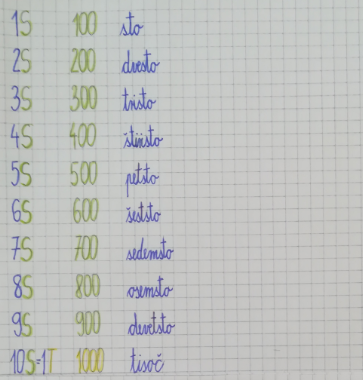 1S 100 sto
2S 200 dvesto
3S 300 tristo
4S 400 štiristo
5S 500 petsto
6S 600 šeststo
7S 700 sedemsto
8S 800 osemsto
9S 900 devetsto
10S=1T 1000 tisoč